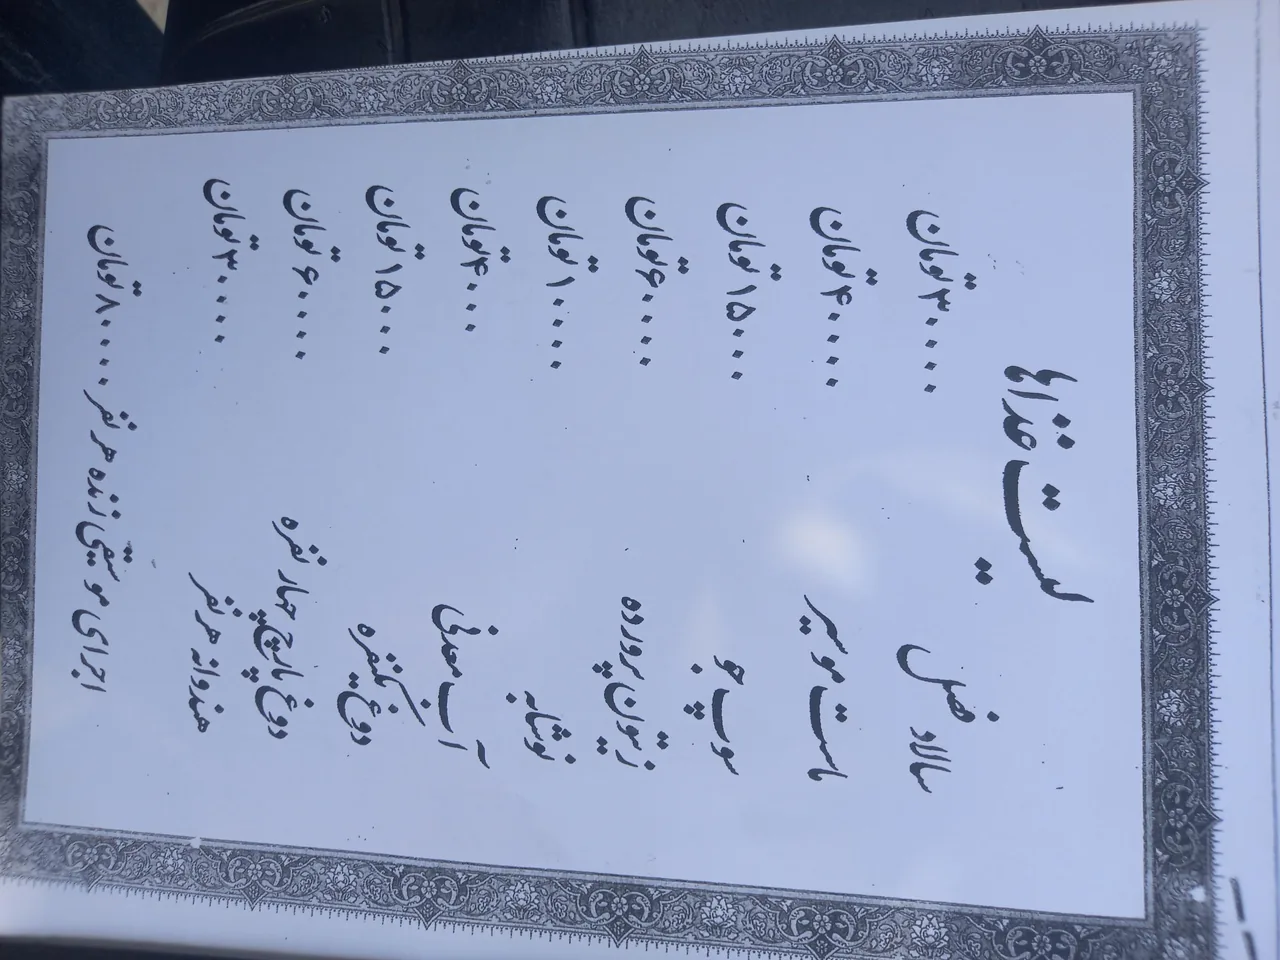 لیست غذاها
سالاد فصل ۳۰۰۰۰ تومان
ماست موسیر ۴۰۰۰۰ تومان
سوپ جو ۱۵۰۰۰ تومان
زیتون پرورده ۶۰۰۰۰ تومان
نوشابه ۱۰۰۰۰ تومان
آب معدنی ۴۰۰۰ تومان
دوغ تکنفره ۱۵۰۰۰ تومان
دوغ پارچ چهار نفره ۶۰۰۰۰ تومان
هندوانه هر نفر ۳۰۰۰۰ تومان
اجرای موسیقی زنده هر نفر ۸۰۰۰۰ تومان